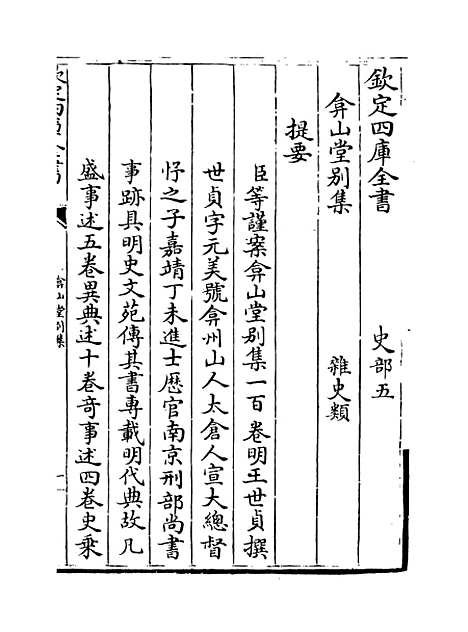 欽定四庫全書 史部五
弇山堂別集 雜史類
提要
臣等謹案弇山堂別集一百卷明王世貞撰
世貞字元美號弇州山人太倉人宣大總督
忬之子嘉靖丁未進士歷官南京刑部尚書
事跡具明史文苑傳其書専載明代典故凡
盛事述五卷異典述十卷竒事述四卷史乗
弇山堂別集